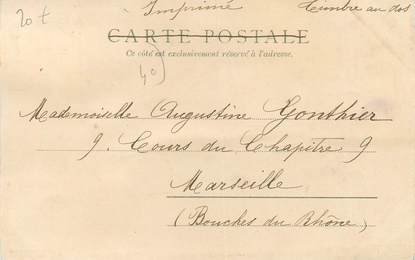 20 t
Imprimé Timbre au dos
CARTE POSTALE
Ce côté est exclusivement réservé à l'adresse.
40
Mademoiselle Augustine Gonthier
9. Cours du Chapitre 9
Marseille
(Bouches du Rhône)